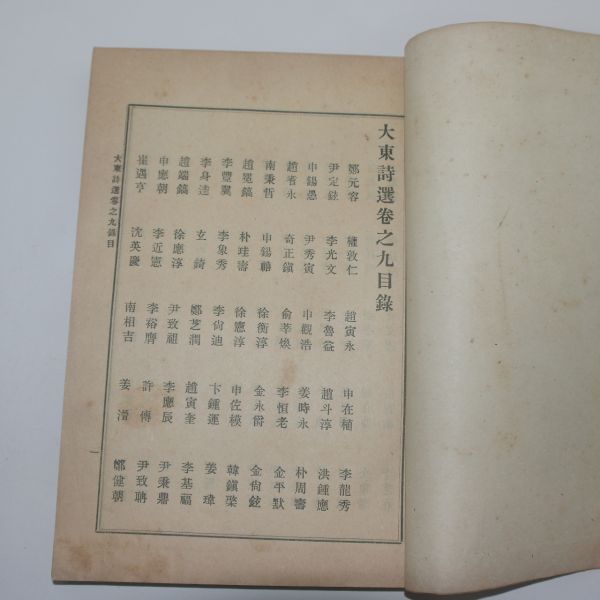 大東詩選卷之九目錄
鄭元容 權敦仁 趙寅永 申在植 李龍秀
尹定鉉 李光文 李魯益 趙斗淳 洪鍾應
申錫愚 尹秀寅 申觀浩 姜時永 朴周壽
趙秉永 奇正鎭 兪莘煥 李恒老 金平默
南秉哲 申錫 徐衡淳 金永爵 金尙鉉
趙冕鎬 朴珪壽 徐憲淳 申佐模 韓鎭棨
李豐翼 李象秀 李尙迪 卞鍾運 姜瑋
李身逵 玄錡 鄭芝潤 趙寅奎 李基福
趙端鎬 徐應淳 尹致祖 李應辰 尹秉鼎
申應朝 李近憲 李裕膺 許傳 尹致聃
崔遇亨 沈英慶 南相吉 姜溍 鄭健朝
大東詩選卷之九目錄
一